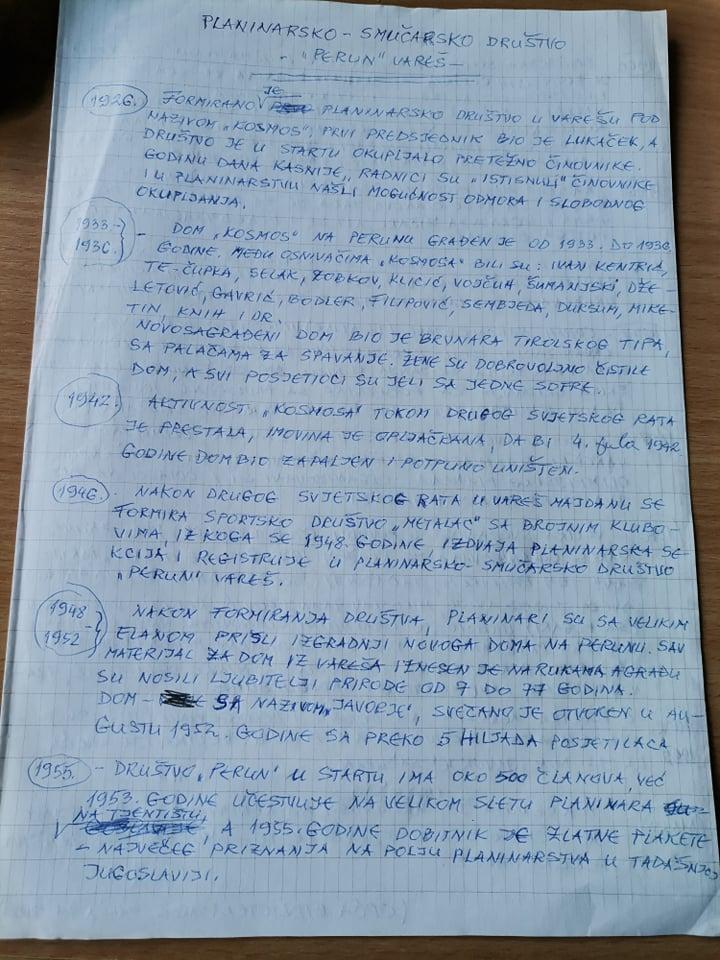 PLANINARSKO - SMUČARSKO DRUŠTVO
- "PERUN" VAREŠ -
1926. FORMIRANO JE PLANINARSKO DRUŠTVO U VAREŠU POD
NAZIVOM "KOSMOS", PRVI PREDSJEDNIK BIO JE LUKAČEK, A
DRUŠTVO JE U STARTU OKUPLJALO PRETEŽNO ČINOVNIKE.
GODINU DANA KASNIJE, RADNICI SU "ISTISNULI" ČINOVNIKE
I U PLANINARSTVU NAŠLI MOGUĆNOST ODMORA I SLOBODNOG
OKUPLJANJA.
1933.- 1936. - DOM "KOSMOS" NA PERUNU GRAĐEN JE OD 1933. DO 1936.
GODINE. MEĐU OSNIVAČIMA "KOSMOSA" BILI SU: IVAN KENTRIĆ,
TE-ČUPKA, SELAK, ZOBKOV, KLICIĆ, VOJČUH, ŠUMANJSKI, DŽE-
LETOVIĆ, GAVRIĆ, BODLER, FILIPOVIĆ, SEMBJEDA, DURSUM, MIKE-
TIN, KNIH I DR.
NOVOSAGRAĐENI DOM BIO JE BRVNARA TIROLSKOG TIPA,
SA PALAČAMA ZA SPAVANJE. ŽENE SU DOBROVOLJNO ČISTILE
DOM, A SVI POSJETIOCI SU JELI SA JEDNE SOFRE.
1942. AKTIVNOST "KOSMOSA" TOKOM DRUGOG SVJETSKOG RATA
JE PRESTALA, IMOVINA JE OPLJAČKANA, DA BI 4. jula 1942.
GODINE DOM BIO ZAPALJEN I POTPUNO UNIŠTEN.
1946. - NAKON DRUGOG SVJETSKOG RATA U VAREŠ MAJDANU SE
FORMIRA SPORTSKO DRUŠTVO "METALAC" SA BROJNIM KLUBO-
VIMA, IZ KOGA SE 1948. GODINE, IZDVAJA PLANINARSKA SE-
KCIJA I REGISTRUJE U PLANINARSKO-SMUČARSKO DRUŠTVO
"PERUN" VAREŠ.
1948 1952 NAKON FORMIRANJA DRUŠTVA, PLANINARI SU SA VELIKIM
ELANOM PRIŠLI IZGRADNJI NOVOGA DOMA NA PERUNU. SAV
MATERIJAL ZA DOM IZ VAREŠA IZNESEN JE NA RUKAMA A GRAĐU
SU NOSILI LJUBITELJI PRIRODE OD 7 DO 77 GODINA.
DOM - SA NAZIVOM "JAVORJE", SVEČANO JE OTVOREN U AU-
GUSTU 1952. GODINE SA PREKO 5 HILJADA POSJETILACA
1955. - DRUŠTVO "PERUN" U STARTU IMA OKO 500 ČLANOVA, VEĆ
1953. GODINE UČESTVUJE NA VELIKOM SLETU PLANINARA
NA TJENTIŠTU, A 1955. GODINE DOBITNIK JE ZLATNE PLAKETE
- NAJVEĆEG PRIZNANJA NA POLJU PLANINARSTVA U TADAŠNJOJ
JUGOSLAVIJI.